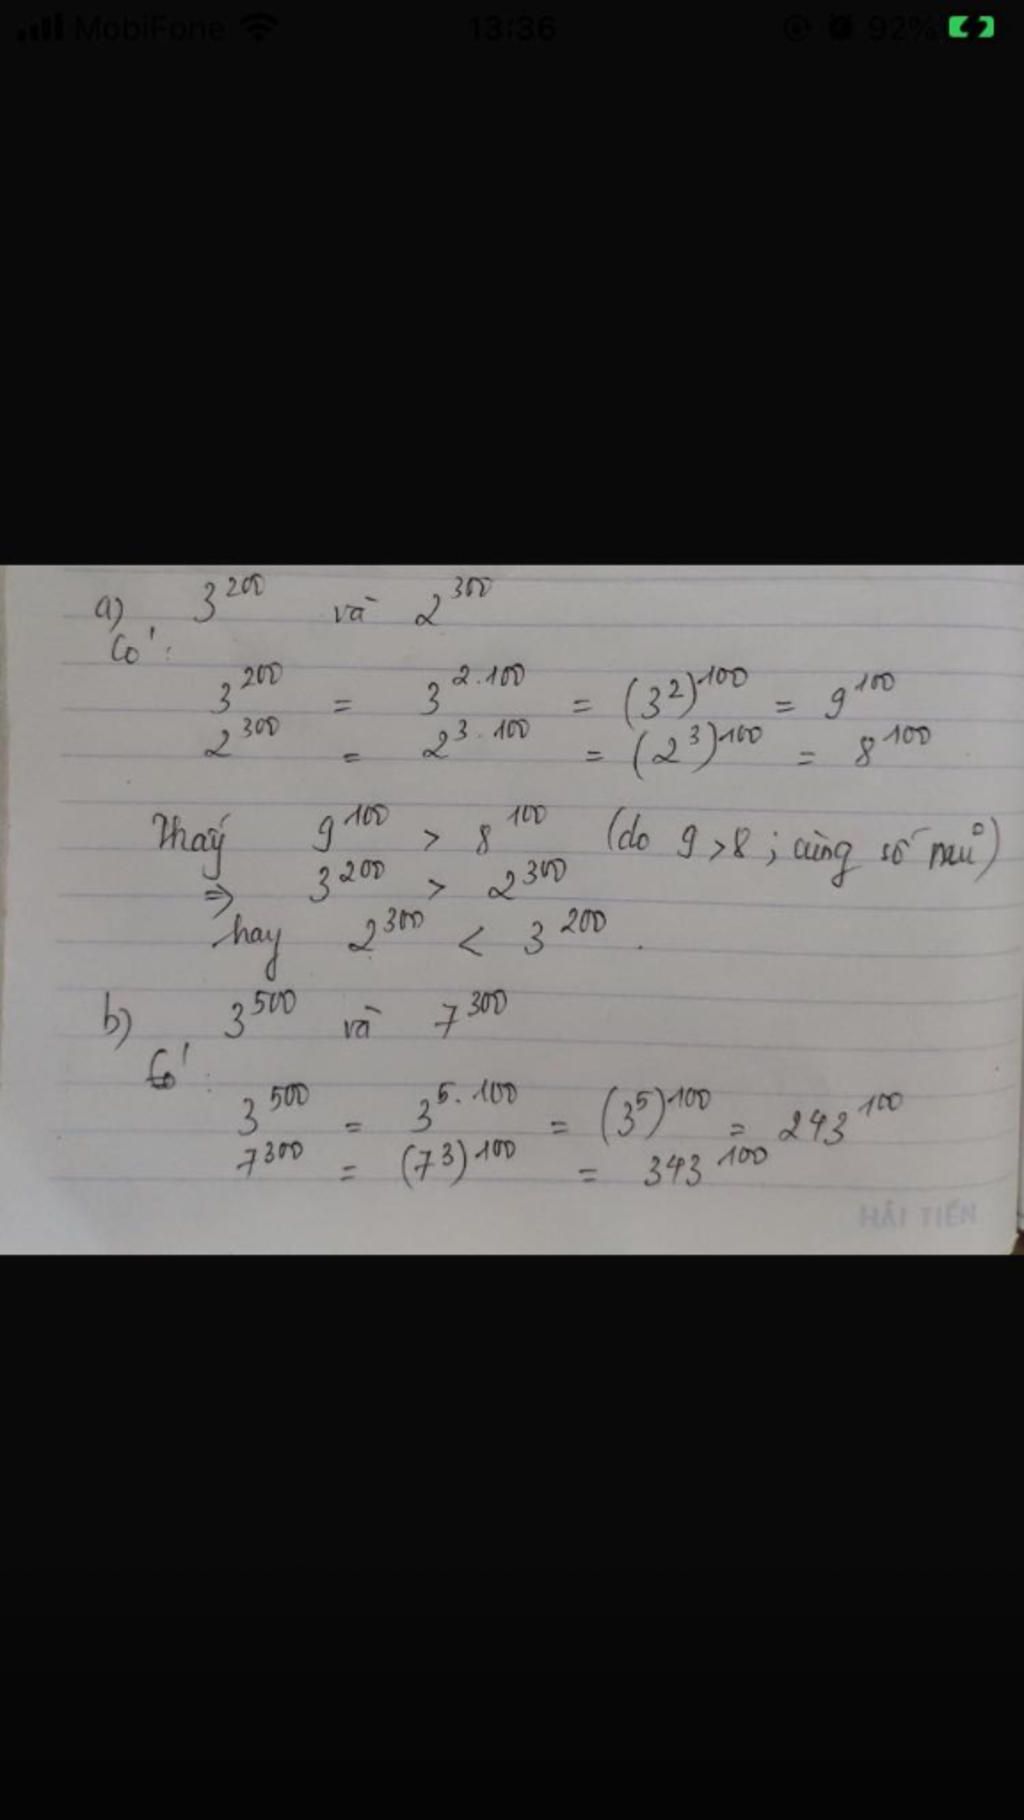 MobiFone 13:36 92%
a) 3^200 và 2^300
Có:
3^200 = 3^2.100 = (3^2)^100 = 9^100
2^300 = 2^3.100 = (2^3)^100 = 8^100
Thấy 9^100 > 8^100 (do 9 > 8 ; cùng số mũ)
⇒ 3^200 > 2^300
hay 2^300 < 3^200.
b) 3^500 và 7^300
Có:
3^500 = 3^5.100 = (3^5)^100 = 243^100
7^300 = (7^3)^100 = 343^100
HẢI TIẾN